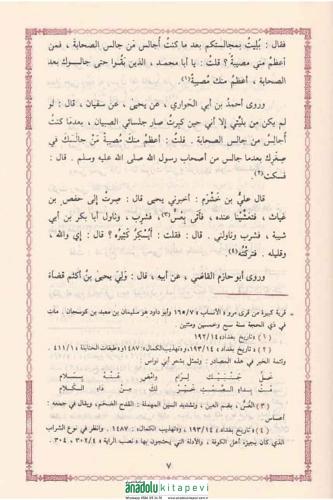 فقال : بُليتُ بمجالستكم بعد ما كنتُ أُجالس مَن جالس الصحابة ، فمن
أعظمُ مني مصيبةً ؟ قلتُ : يا أبا محمد ، الذين بَقُوا حتى جالسوك بعد
الصحابة ، أعظمُ منك مُصيبةً(١) .
وروى أحمدُ بن أبي الحَواري ، عن يحيى ، عن سفيان ، قال : لو
لم يكن مِن بَليَّتي إلا أني حين كَبِرتُ صار جلسائي الصبيان ، بعدما كنتُ
أُجالِسُ مَن جالسَ الصحابة . قلتُ : أعظمُ منك مُصيبةً مَنْ جالَسَك في
صِغَرِك بعدما جالس من أصحاب رسول الله صلى الله عليه وسلم . قال :
فسكت(٢) .
قال عليُّ بن خَشْرَم : أخبرني يحيى قال : صِرتُ إلى حفص بن
غياث ، فتعشَّينا عنده ، فأتى بعُسٍّ(٣) ، فشرب ، وناول أبا بكر بن أبي
شيبة ، فشرب وناولني . قال : فقلت : أيُسْكِرُ كثيرُه ؟ قال : إي والله ،
وقليله . فتركتُه(٤) .
وروى أبو حازم القاضي ، عن أبيه ، قال : وَلِيَ يحيى بنُ أكثم قضاءَ
= قرية كبيرة من قرى مرو « الأنساب » ١٦٥/٧ وأبو داود هو سليمان بن معبد بن كوسجان . مات
في ذي الحجة سنة سبع وخمسين ومئتين .
(١) « تاريخ بغداد » ١٩٢/١٤
(٢) « تاريخ بغداد » ١٩٣/١٤ ، و« تهذيب الكمال » : ١٤٨٧ و« طبقات الحنابلة » ٤١١/١ ،
وتتمة الخبر في هذه المصادر : وتمثل بشعر أبي نواس
خَلِّ جَنْبَيْكَ لِرَامِ وامْضِ عَنْهُ بِسَلَامِ
مُتْ بِدَاءِ الصَّمْتِ خَيْرٌ لَكَ مِنْ دَاءِ الْكَلَامِ
(٣) العُسُّ ، بضم العين ، وتشديد السين المهملة : القدح الضخم ، ويقال في جمعه :
أعساس
(٤) « تاريخ بغداد » ١٩٣/١٤ ، و« تهذيب الكمال » : ١٤٨٧ . وانظر في نوع الشراب
الذي كان يجيزه أهل الكوفة ، والأدلة التي يحتجون بها « نصب الراية » ٣٠٢/٤ ، ٣٠٤ .
٧
anadolukitapevi